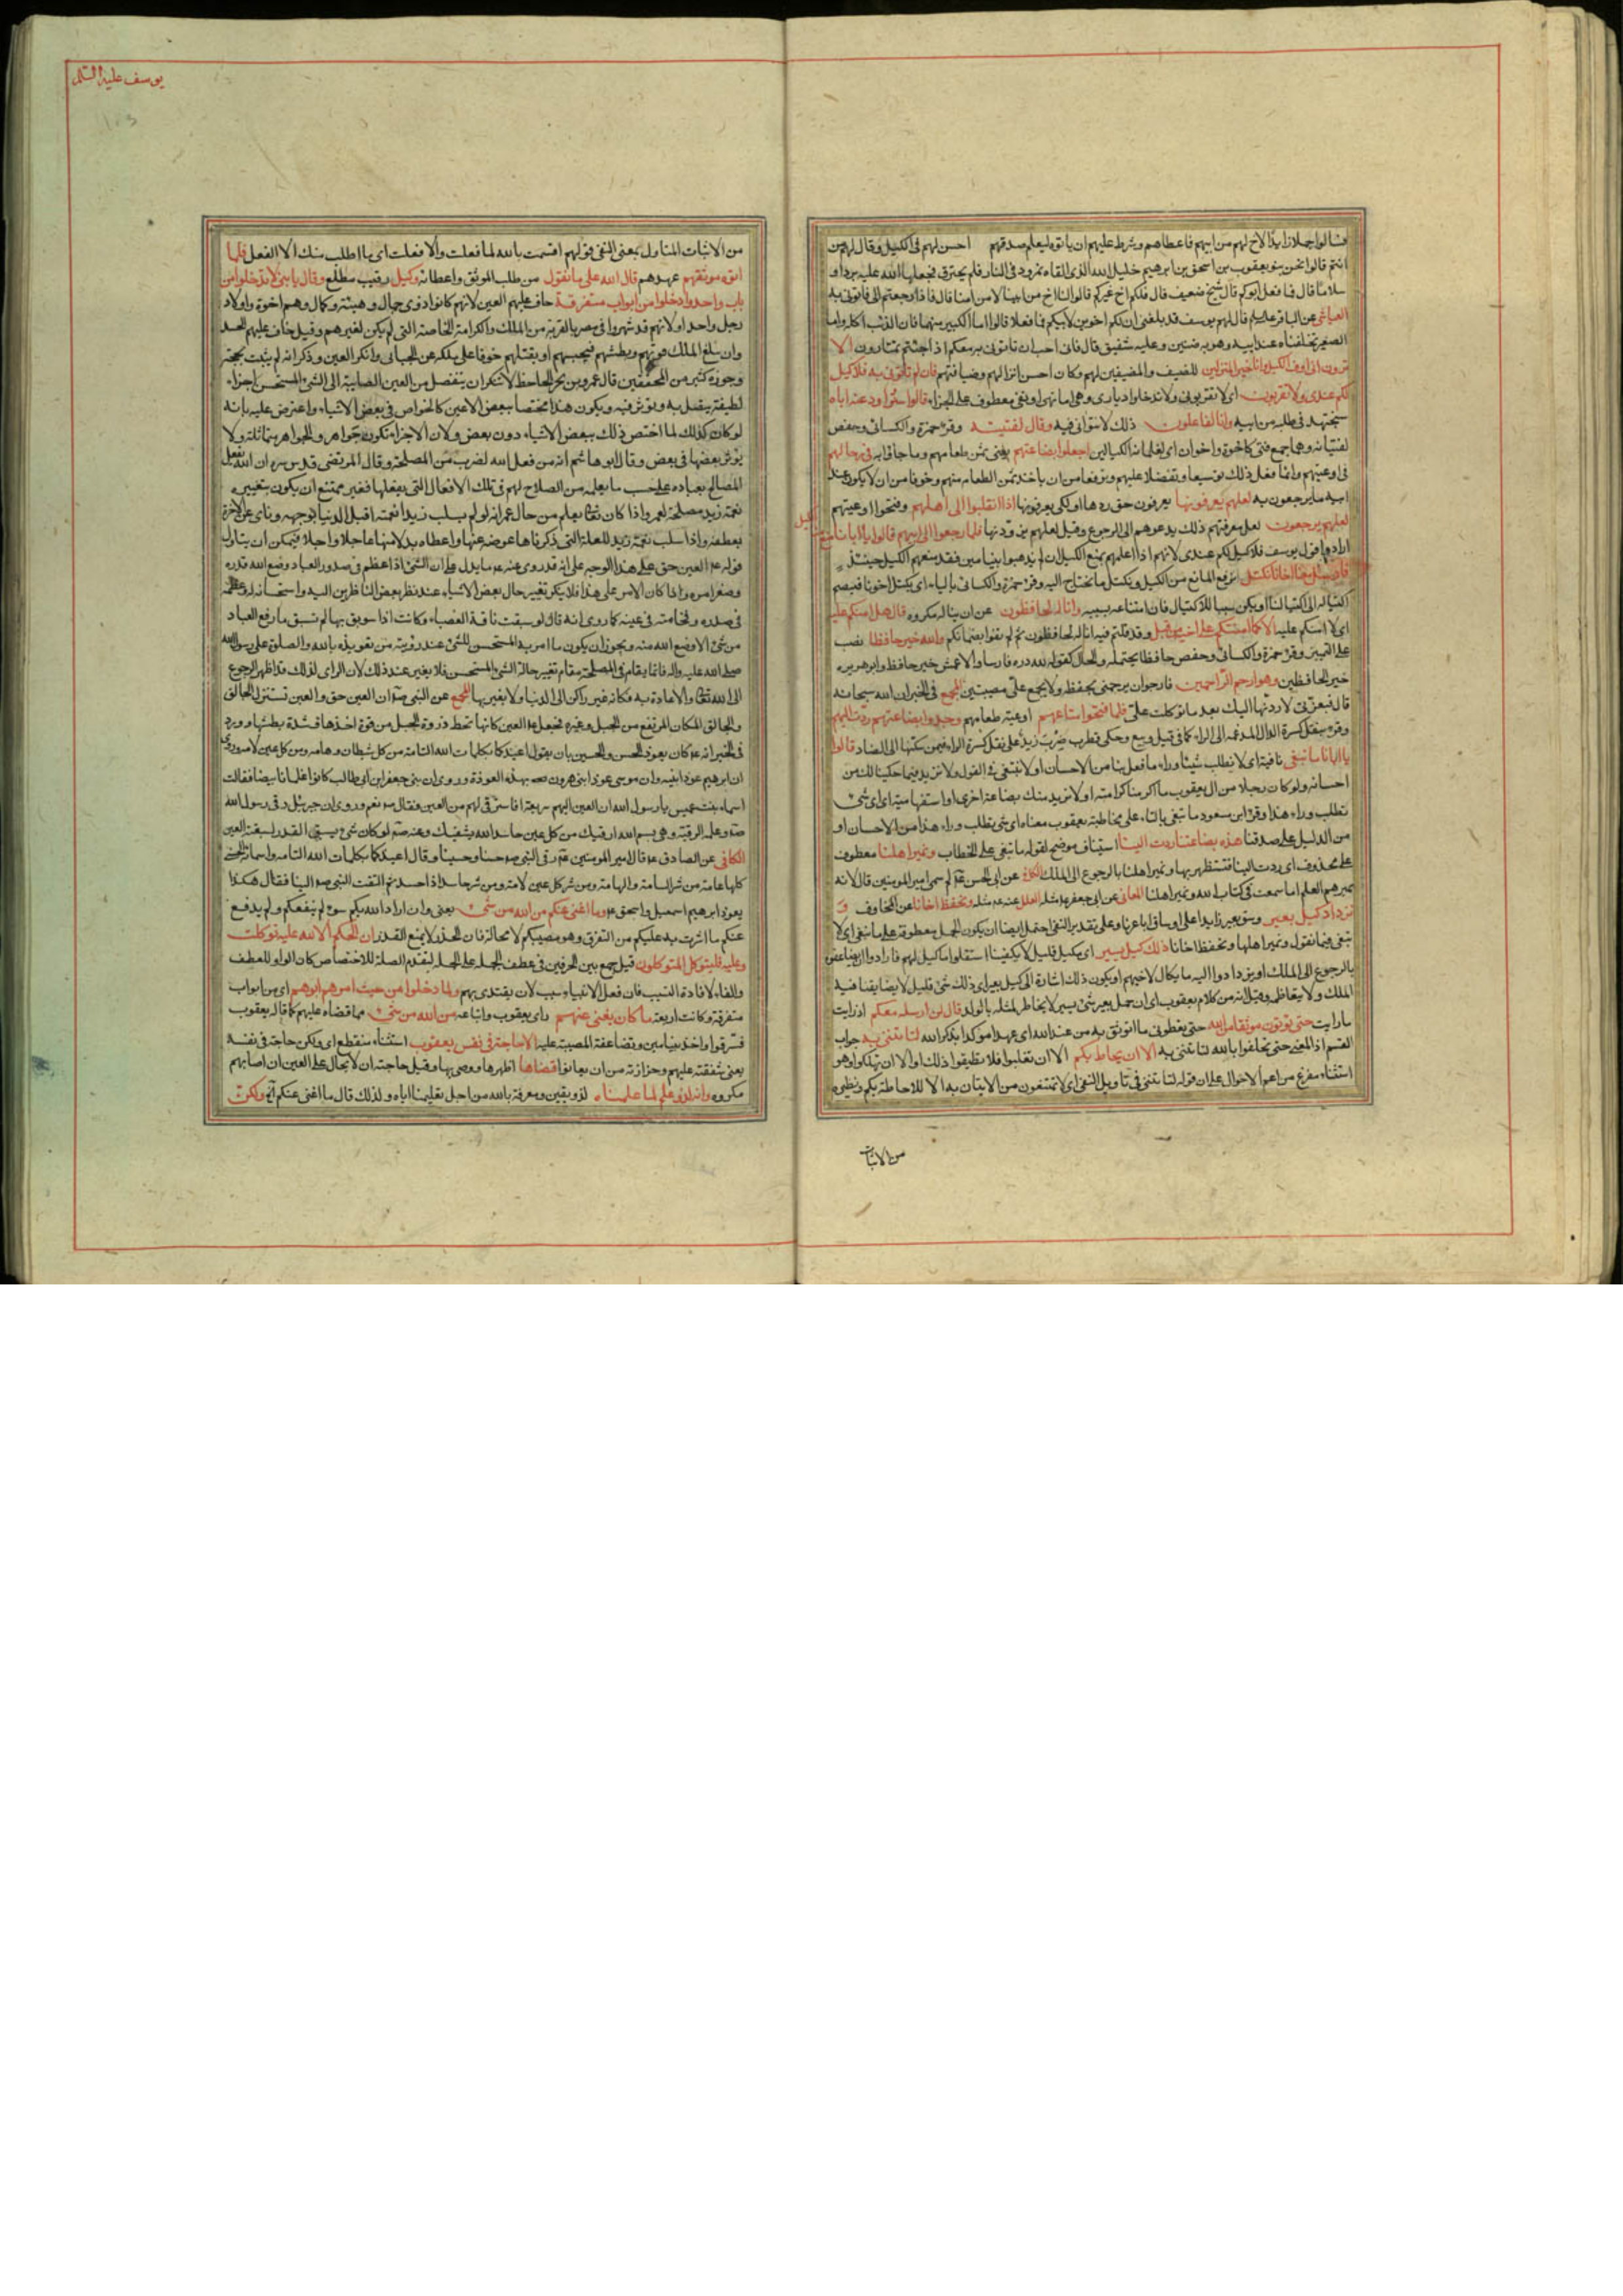 فسألوا حملا زايدا لاخ لهم من ابيهم فاعطاهم وشرط عليهم ان ياتوه ليعلم صدقهم احسن لهم فى الكيل وقال لهم من
انتم قالوا نحن بنو يعقوب بن اسحق بن ابرهيم خليل الله الذى القاه نمرود فى النار فلم يحترق فجعلها الله عليه بردا و
سلاما قال فما فعل ابوكم قال شيخ ضعيف قال فلكم اخ غيركم قالوا لنا اخ من ابينا لا من امنا قال فاذا رجعتم الى فاتونى به
العياشى عن الباقر عليه السلام قال لهم يوسف قد بلغنى ان لكم اخوين لابيكم فما فعلا قالوا اما الكبير منهما فان الذئب اكله واما
الصغير فخلفناه عند ابيه وهو به ضنين وعليه شفيق قال فانى احب ان تاتونى به معكم اذا جئتم تمتارون الا
ترون انى اوف الكيل وانا خير المنزلين للضيف والمضيفين لهم وكان احسن انزالهم وضيافتهم فان لم تاتونى به فلا كيل
لكم عندى ولا تقربون اى لا تقربونى ولا تدخلوا ديارى وهو اما نهى او نفى معطوف على الجزاء قالوا سنراود عنه اباه
سنجتهد فى طلبه من ابيه وانا لفاعلون ذلك لا نتوانى فيه وقال لفتيته وقرء حمزة والكسائى وحفص
لفتيانه وهما جمع فتى كاخوة واخوان اى لغلمانه الكيالين اجعلوا بضاعتهم يعنى ثمن طعامهم وما جاؤا به فى رحالهم
فى اوعيتهم وانما فعل ذلك توسيعا وتفضلا عليهم وترفعا من ان ياخذ ثمن الطعام منهم وخوفا من ان لا يكون عند
ابيه ما يرجعون به لعلهم يعرفونها يعرفون حق ردها او لكى يعرفونها اذا انقلبوا الى اهلهم وفتحوا اوعيتهم
لعلهم يرجعون لعل معرفتهم ذلك يدعوهم الى الرجوع وقيل لعلهم يردونها فلما رجعوا الى ابيهم قالوا يا ابانا منع
الكيل
ارادوا قول يوسف فلا كيل لكم عندى لانهم اذا اعلمهم بمنع الكيل ان لم يذهبوا ببنيامين فقد منعهم الكيل حينئذ
فارسل معنا اخانا نكتل نرفع المانع من الكيل ونكتل ما نحتاج اليه وقرء حمزة والكسائى بالياء اى يكتل اخونا فيضم
اكتياله الى اكتيالنا او يكن سببا للاكتيال فان امتناعه بسببه وانا له لحافظون عن ان يناله مكروه قال هل امنكم عليه
اى لا امنكم عليه الا كما امنتكم على اخيه من قبل وقد قلتم فيه انا له لحافظون ثم لم تفوا بضمانكم والله خير حافظا نصب
على التمييز وقرء حمزة والكسائى وحفص حافظا يحتمله والحال كقوله لله دره فارسا والاعمش خير حافظ وابو هريره
خير الحافظين وهو ارحم الراحمين فارجو ان يرحمنى بحفظه ولا يجمع على مصيبتين المجمع فى الخبر ان الله سبحانه
قال فبعزتى لاردنهما اليك بعد ما توكلت على فلما فتحوا متاعهم اوعية طعامهم وجدوا بضاعتهم ردت اليهم
وقرء بنقل كسرة الدال المدغمه الى الراء كما فى قيل وبيع وحكى قطرب ضرب زيد على نقل كسرة الراء فيمن سكنها الى الضاد قالوا
يا ابانا ما نبغى نافية اى لا نطلب شيئا وراء ما فعل بنا من الاحسان او لا نبتغى فى القول ولا نزيد فيما حكينا لك من
احسانه ولو كان رجلا من ال يعقوب ما اكرمنا كرامته او لا نريد منك بضاعة اخرى او استفهامية اى اى شئ
نطلب وراء هذا وقرء ابن مسعود ما تبغى بالتاء على مخاطبة يعقوب معناه اى شئ تطلب وراء هذا من الاحسان او
من الدليل على صدقنا هذه بضاعتنا ردت الينا استيناف موضح لقوله ما نبغى على الخطاب ونمير اهلنا معطوف
على محذوف اى ردت الينا فنستظهر بها ونمير اهلنا بالرجوع الى الملك الكافى عن ابى الحسن ع لم سمى امير المؤمنين قال لانه
يميرهم العلم اما سمعت فى كتاب الله ونمير اهلنا المعانى عن ابى جعفر ع مثله العلل عنه ع مثله ونحفظ اخانا عن المخاوف و
نزداد كيل بعير وسق بعير زايدا على اوساق اباعرنا وعلى تقدير النفى احتمل ايضا ان يكون الجمل معطوفة على ما نبغى اى لا
نبغى فيما نقول ونمير اهلنا ونحفظ اخانا ذلك كيل يسير اى مكيل قليل لا يكفينا استقلوا ما كيل لهم فارادوا ان يضاعفوه
بالرجوع الى الملك او يزدادوا اليه ما يكال لاخيهم او يكون ذلك اشارة الى كيل بعير اى ذلك شئ قليل لا يضايقنا فيه
الملك ولا يتعاظمه وقيل انه من كلام يعقوب اى ان حمل بعير شئ يسير لا يخاطر لمثله بالولد قال لن ارسله معكم اذ رايت
ما رايت حتى تؤتون موثقا من الله حتى تعطونى ما اتوثق به من عند الله اى عهدا موكدا بذكر الله لتاتننى به جواب
القسم اذ المعنى حتى تحلفوا بالله لتاتننى به الا ان يحاط بكم الا ان تغلبوا فلا تطيقوا ذلك او الا ان تهلكوا وهو
استثناء مفرغ من اعم الاحوال على ان قوله لتاتننى فى تاويل النفى اى لا تمتنعون من الاتيان به الا للاحاطة بكم ونظيره
من الاثبات
يوسف عليه السلم
من الاثبات المتاول بمعنى النفى قولهم اقسمت بالله لما فعلت والا فعلت اى ما اطلب منك الا الفعل فلما
اتوه موثقهم عهدهم قال الله على ما نقول من طلب الموثق واعطائه وكيل رقيب مطلع وقال يا بنى لا تدخلوا من
باب واحد وادخلوا من ابواب متفرقة خاف عليهم العين لانهم كانوا ذوى جمال وهيئة وكمال وهم اخوة واولاد
رجل واحد او لانهم قد شهروا فى مصر بالقربة من الملك والكرامة الخاصة التى لم يكن لغيرهم وقيل خاف عليهم الحسد
وان يبلغ الملك قوتهم وبطشهم فيحبسهم او يقتلهم خوفا على ملكه عن الجبائى وانكر العين وذكر انه لم يثبت بحجة
وجوزه كثير من المحققين قال عمرو بن بحر الجاحظ لا ننكر ان ينفصل من العين الصايبة الى الشئ المستحسن اجزاء
لطيفة يتصل به وتوثر فيه ويكون هذا مختصا ببعض الاعين كالخواص فى بعض الاشياء واعترض عليه بانه
لو كان كذلك لما اختص ذلك ببعض الاشياء دون بعض ولان الاجزاء تكون جواهر والجواهر متماثلة ولا
يوثر بعضها فى بعض وقال ابو هاشم انه من فعل الله لضرب من المصلحة وقال المرتضى قدس سره ان الله يفعل
المصالح بعباده على حسب ما يعلمه من الصلاح لهم فى تلك الافعال التى يفعلها فغير ممتنع ان يكون بتغييره
نعمة زيد مصلحة لعمرو واذا كان تعالى يعلم من حال عمرو انه لو لم يسلب زيدا نعمته اقبل الدنيا بوجهه وناى عن الاخرة
بعطفه واذا سلب نعمة زيد للعلة التى ذكرناها عوضه عنها واعطاه بدلا منها عاجلا واجلا فيمكن ان يتاول
قوله ع العين حق على هذا الوجه على انه قد روى عنه ع ما يدل على ان الشئ اذا عظم فى صدور العباد وضع الله قدره
وصغر امره واذا كان الامر على هذا فلا ينكر تغيير حال بعض الاشياء عند نظر بعض الناظرين اليه واستحسانه له وعظمه
فى صدره وفخامته فى عينه كما روى انه قال لو سبقت ناقة العضباء وكانت اذا سوبق بها لم تسبق ما رفع العباد
من شئ الا وضع الله منه ويجوز ان يكون ما امر به المستحسن للشئ عند رؤيته من تعويذه بالله والصلوة على رسول الله
صلى الله عليه واله قائما مقام فى المصلحة مقام تغيير حالة الشئ المستحسن فلا يغير عند ذلك لان الرائى لذلك قد اظهر الرجوع
الى الله تعالى والاعاذة به فكانه غير راكن الى الدنيا ولا يغير بها المجمع عن النبى ص ان العين حق والعين تستنزل الحالق
والحالق المكان المرتفع من الجبل وغيره فجعل ع العين كانها تحط ذروة الجبل من قوة اخذها وشدة بطشها وورد
فى الخبر انه ع كان يعوذ الحسن والحسين بان يقول اعيذكما بكلمات الله التامة من كل شيطان وهامه ومن كل عين لامه وروى
ان ابرهيم عوذ ابنيه وان موسى عوذ ابنى هرون بهذه العوذة وروى ان بنى جعفر ابن ابى طالب كانوا غلمانا بيضا فقالت
اسماء بنت عميس يا رسول الله ان العين اليهم سريعة افاسترقى لهم من العين فقال ص نعم وروى ان جبرئيل رقى رسول الله
ص وعلمه الرقية وهى بسم الله ارقيك من كل عين حاسد الله يشفيك وعنه ص لو كان شئ يسبق القدر لسبقته العين
الكافى عن الصادق ع قال امير المومنين ع رقى النبى ص حسنا وحسينا وقال اعيذكما بكلمات الله التامه واسمائه الحسنى
كلها عامة من شر السامة والهامة ومن شر كل عين لامة ومن شر حاسد اذا حسد ثم التفت النبى ص الينا فقال هكذا
يعوذ ابرهيم اسمعيل واسحق ع وما اغنى عنكم من الله من شئ يعنى وان اراد الله بكم سوء لم ينفعكم ولم يدفع
عنكم ما اشرت به عليكم من التفرق وهو مصيبكم لا محالة فان الحذر لا يمنع القدر ان الحكم الا لله عليه توكلت
وعليه فليتوكل المتوكلون قيل جمع بين الحرفين فى عطف الجمله على الجمله لتقدم الصلة للاختصاص كان الواو للعطف
والفاء لافادة التسبب فان فعل الانبياء سبب لان يقتدى بهم ولما دخلوا من حيث امرهم ابوهم اى من ابواب
متفرقة وكانت اربعة ما كان يغنى عنهم راى يعقوب واتباعه من الله من شئ مما قضاه عليهم كما قاله يعقوب
فسرقوا واخذ بنيامين وتضاعفة المصيبة عليه الا حاجة فى نفس يعقوب استثناء منقطع اى ولكن حاجة فى نفسه
يعنى شفقته عليهم وحزازته من ان يعانوا قضاها اظهرها ووصى بها وقيل حاجته ان لا يحال على العين ان اصابهم
مكروه وانه لذو علم لما علمناه لذو يقين ومعرفة بالله من اجل تعليمنا اياه ولذلك قال ما اغنى عنكم آه ولكن